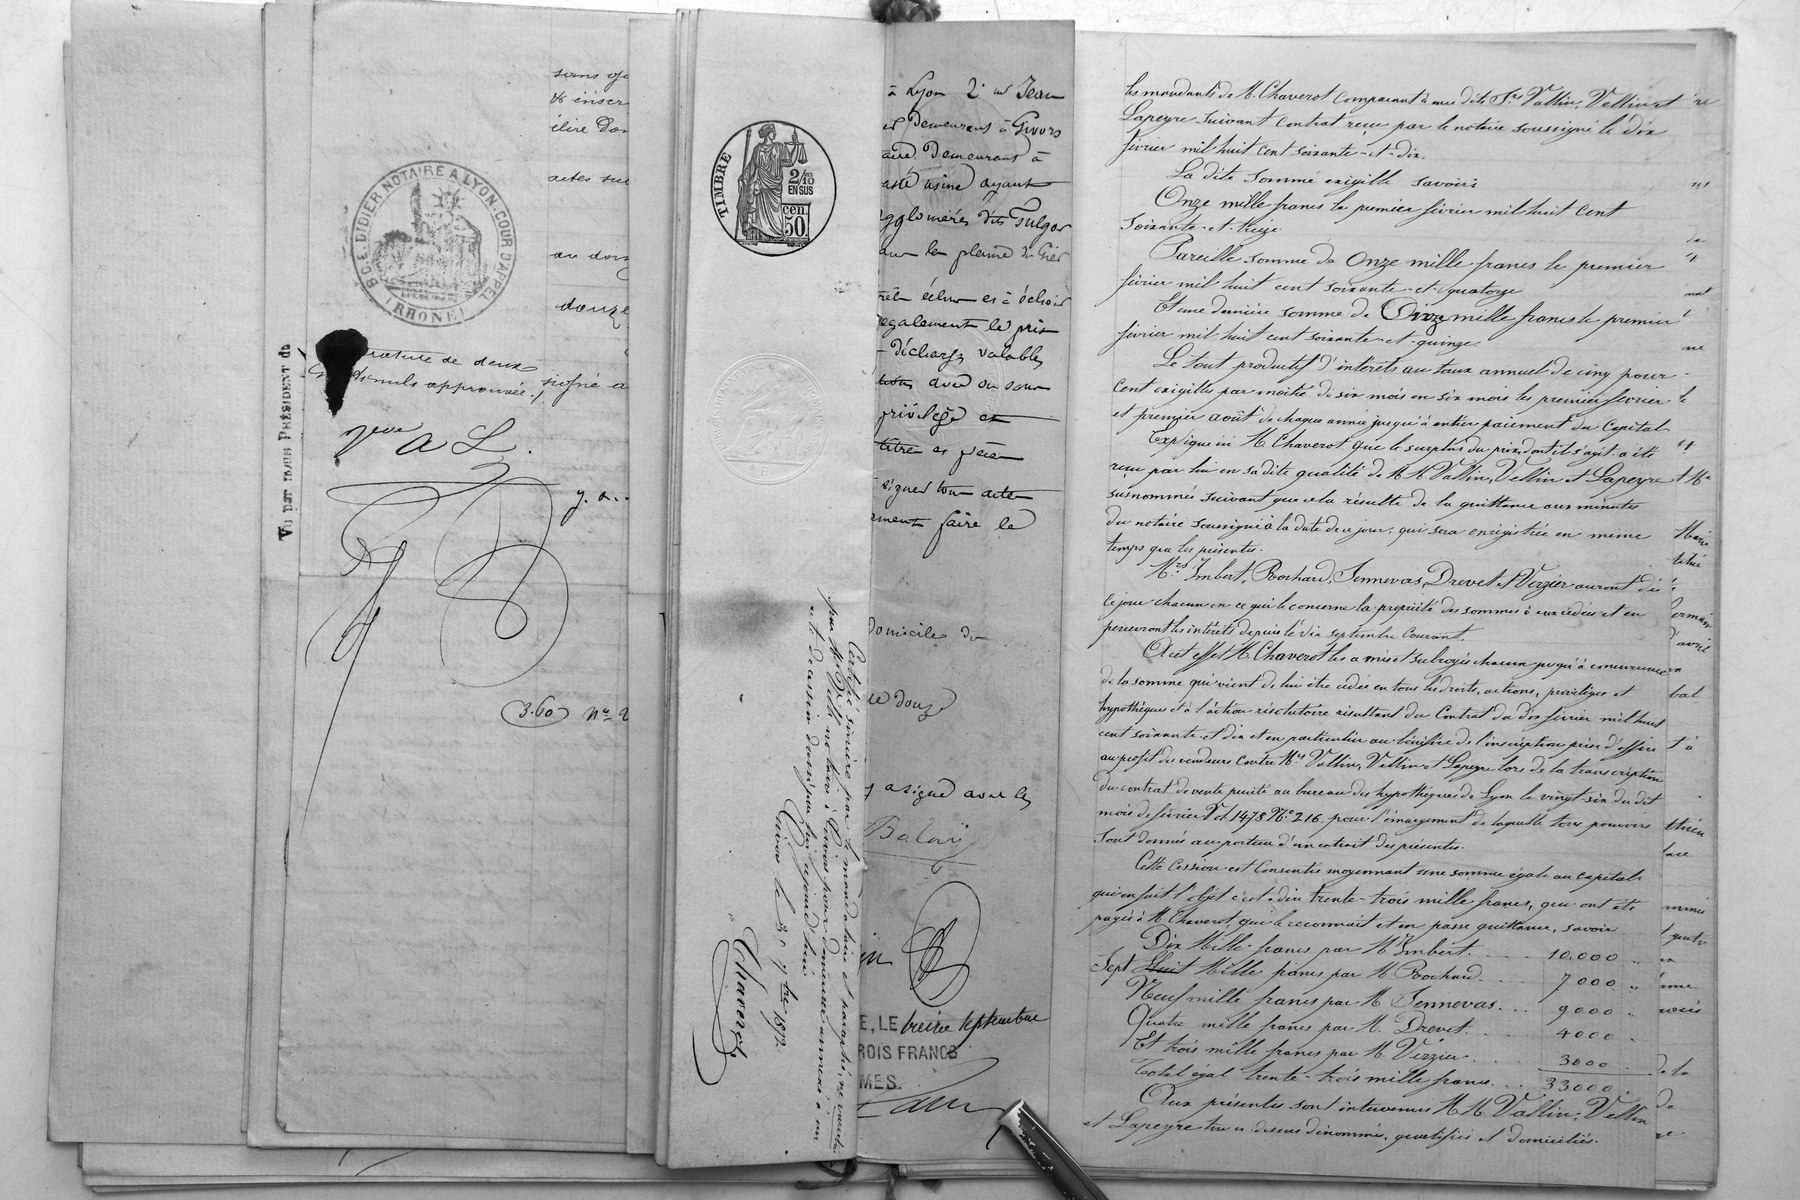 sans
& inscr
élire dom
actes sui
B. C. E. DIDIER NOTAIRE A LYON. COUR D'APPEL
(RHONE)
au dom
douze
Vu par nous PRÉSIDENT du
rature de deux
mots nuls approuvée ./.
signé a
A L.
3.60 No 2
TIMBRE
2/10
EN SUS
cen.
50.
Certifié sincère par le mandataire et paraphé, ne varietur
par Me Didier notaire à Givors pour demeurer annexé à un
acte de cession dressé par lui cejourd'hui.
Givors le 30 7bre 1872.
Chaverot
à Lyon 2° M Jean
et demeurant à Givors
aire demeurant à
asté usine ayant
agglomérés dits Fulgor
dans la plaine de Gier
érêts échus et à échoir
également le prix
décharges valables
tions avec ou sans
privilège et
titres et pièces
signer tous actes
ement faire le
domicile du
ce douze
y a signé avec les
Balaÿ
E, LE treize septembre
ROIS FRANCS
MES.
les mandants de M. Chaverot comparant à mes dits Srs Vallin, Vellin et
Lapeyre suivant contrat reçu par le notaire soussigné le dix
février mil huit cent soixante-et-dix.
La dite somme exigible savoir:
Onze mille francs le premier février mil huit cent
soixante-et-treize
Pareille somme de Onze mille francs le premier
février mil huit cent soixante-et-quatorze
Et une dernière somme de Onze mille francs le premier
février mil huit cent soixante-et-quinze.
Le tout productif d'intérêts au taux annuel de cinq pour
cent exigibles par moitié de six mois en six mois les premier février
et premier août de chaque année jusqu'à entier paiement du Capital
Explique ici M. Chaverot que le surplus du prix dont il s'agit a été
reçu par lui en sa dite qualité de M M Vallin, Vellin et Lapeyre
susnommés suivant que cela résulte de la quittance aux minutes
du notaire soussigné à la date de ce jour, qui sera enregistrée en même
temps que les présentes.
Mrs Imbert, Rochard, Jennevas, Drevet et Verzier auront dès
ce jour chacun en ce qui le concerne la propriété des sommes à eux cédées et en
percevront les intérêts depuis le dix septembre courant.
A cet effet M. Chaverot les a mis et subrogés chacun jusqu'à concurrence
de la somme qui vient de lui être cédée en tous les droits, actions, privilèges et
hypothèques et à l'action résolutoire résultant du Contrat du dix février mil huit
cent soixante-et-dix et en particulier au bénéfice de l'inscription prise d'office
au profit des vendeurs contre Mrs Vallin, Vellin et Lapeyre lors de la transcription
du contrat de vente précité au bureau des hypothèques de Lyon le vingt-six du dit
mois de février Vol 1478 No 216. pour l'émargement de laquelle tous pouvoirs
sont donnés au porteur d'un extrait des présentes.
Cette Cession est Consentie moyennant une somme égale au capital
qui en fait l'objet c'est-à-dire trente-trois mille francs, qui ont été
payés à M. Chaverot, qui le reconnaît et en passe quittance, savoir
Dix Mille francs par M Imbert . . . . 10.000 "
Sept Huit Mille francs par M Rochard . . . 7000 "
Neuf mille francs par M Jennevas . . . 9000 "
Quatre mille francs par M. Drevet . . . 4000 "
Et trois mille francs par M Verzier . . . 3000
Total égal trente-trois mille francs . . . 33000
Aux présentes sont intervenus M M Vallin, Vellin
et Lapeyre tous ci dessus dénommés, qualifiés et domiciliés.